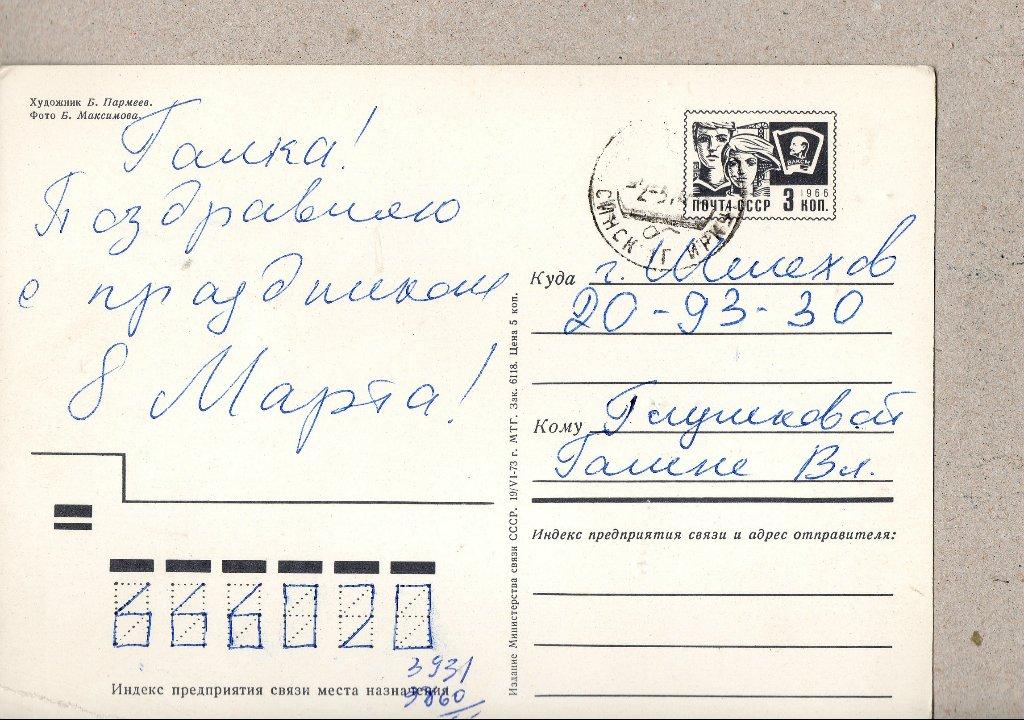 Художник Б. Пармеев.
Фото Б. Максимова.
Галка!
Поздравляю
с праздником
8 Марта!
ВЛКСМ
1966
ПОЧТА СССР 3 КОП.
Куда г. Шелехов
20-93-30
Кому Глушковой
Галине Вл.
Индекс предприятия связи и адрес отправителя:
Издание Министерства связи СССР. 19/VI-73 г. МТГ. Зак. 6118. Цена 5 коп.
666020
Индекс предприятия связи места назначения
3931